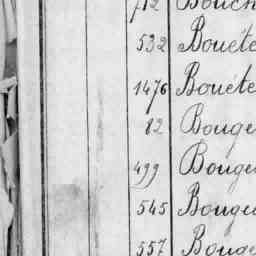 712 Bouch
532 Bouéte
1476 Bouéte
82 Bouge
499 Bouge
545 Bouge
557 Bouge